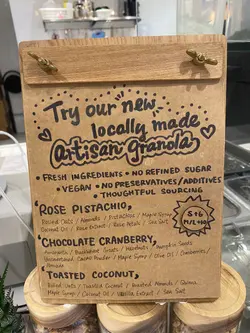 Try our "new"
locally made
artisan granola
• FRESH INGREDIENTS • NO REFINED SUGAR
• VEGAN • NO PRESERVATIVES/ADDITIVES
• THOUGHTFUL SOURCING
'ROSE PISTACHIO,
Rolled Oats / Almonds / Pistachios / Maple Syrup
Coconut Oil / Rose Extract / Rose Petals / Sea Salt
$16
'CHOCOLATE CRANBERRY,
Buckwheat Groats / Hazelnuts / Pumpkin Seeds
Cacao Powder / Maple Syrup / Olive Oil / Cranberries /
'TOASTED COCONUT,
Rolled Oats / Toasted Coconut / Almonds / Quinoa
Maple Syrup / Coconut Oil / Vanilla Extract / Sea Salt